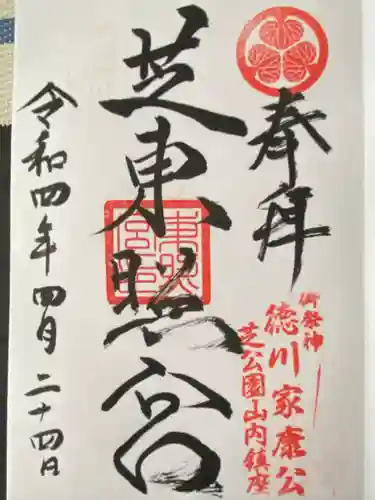 奉拝
御祭神
徳川家康公
芝公園山内鎮座
芝東照宮
東照宮
令和四年四月二十四日